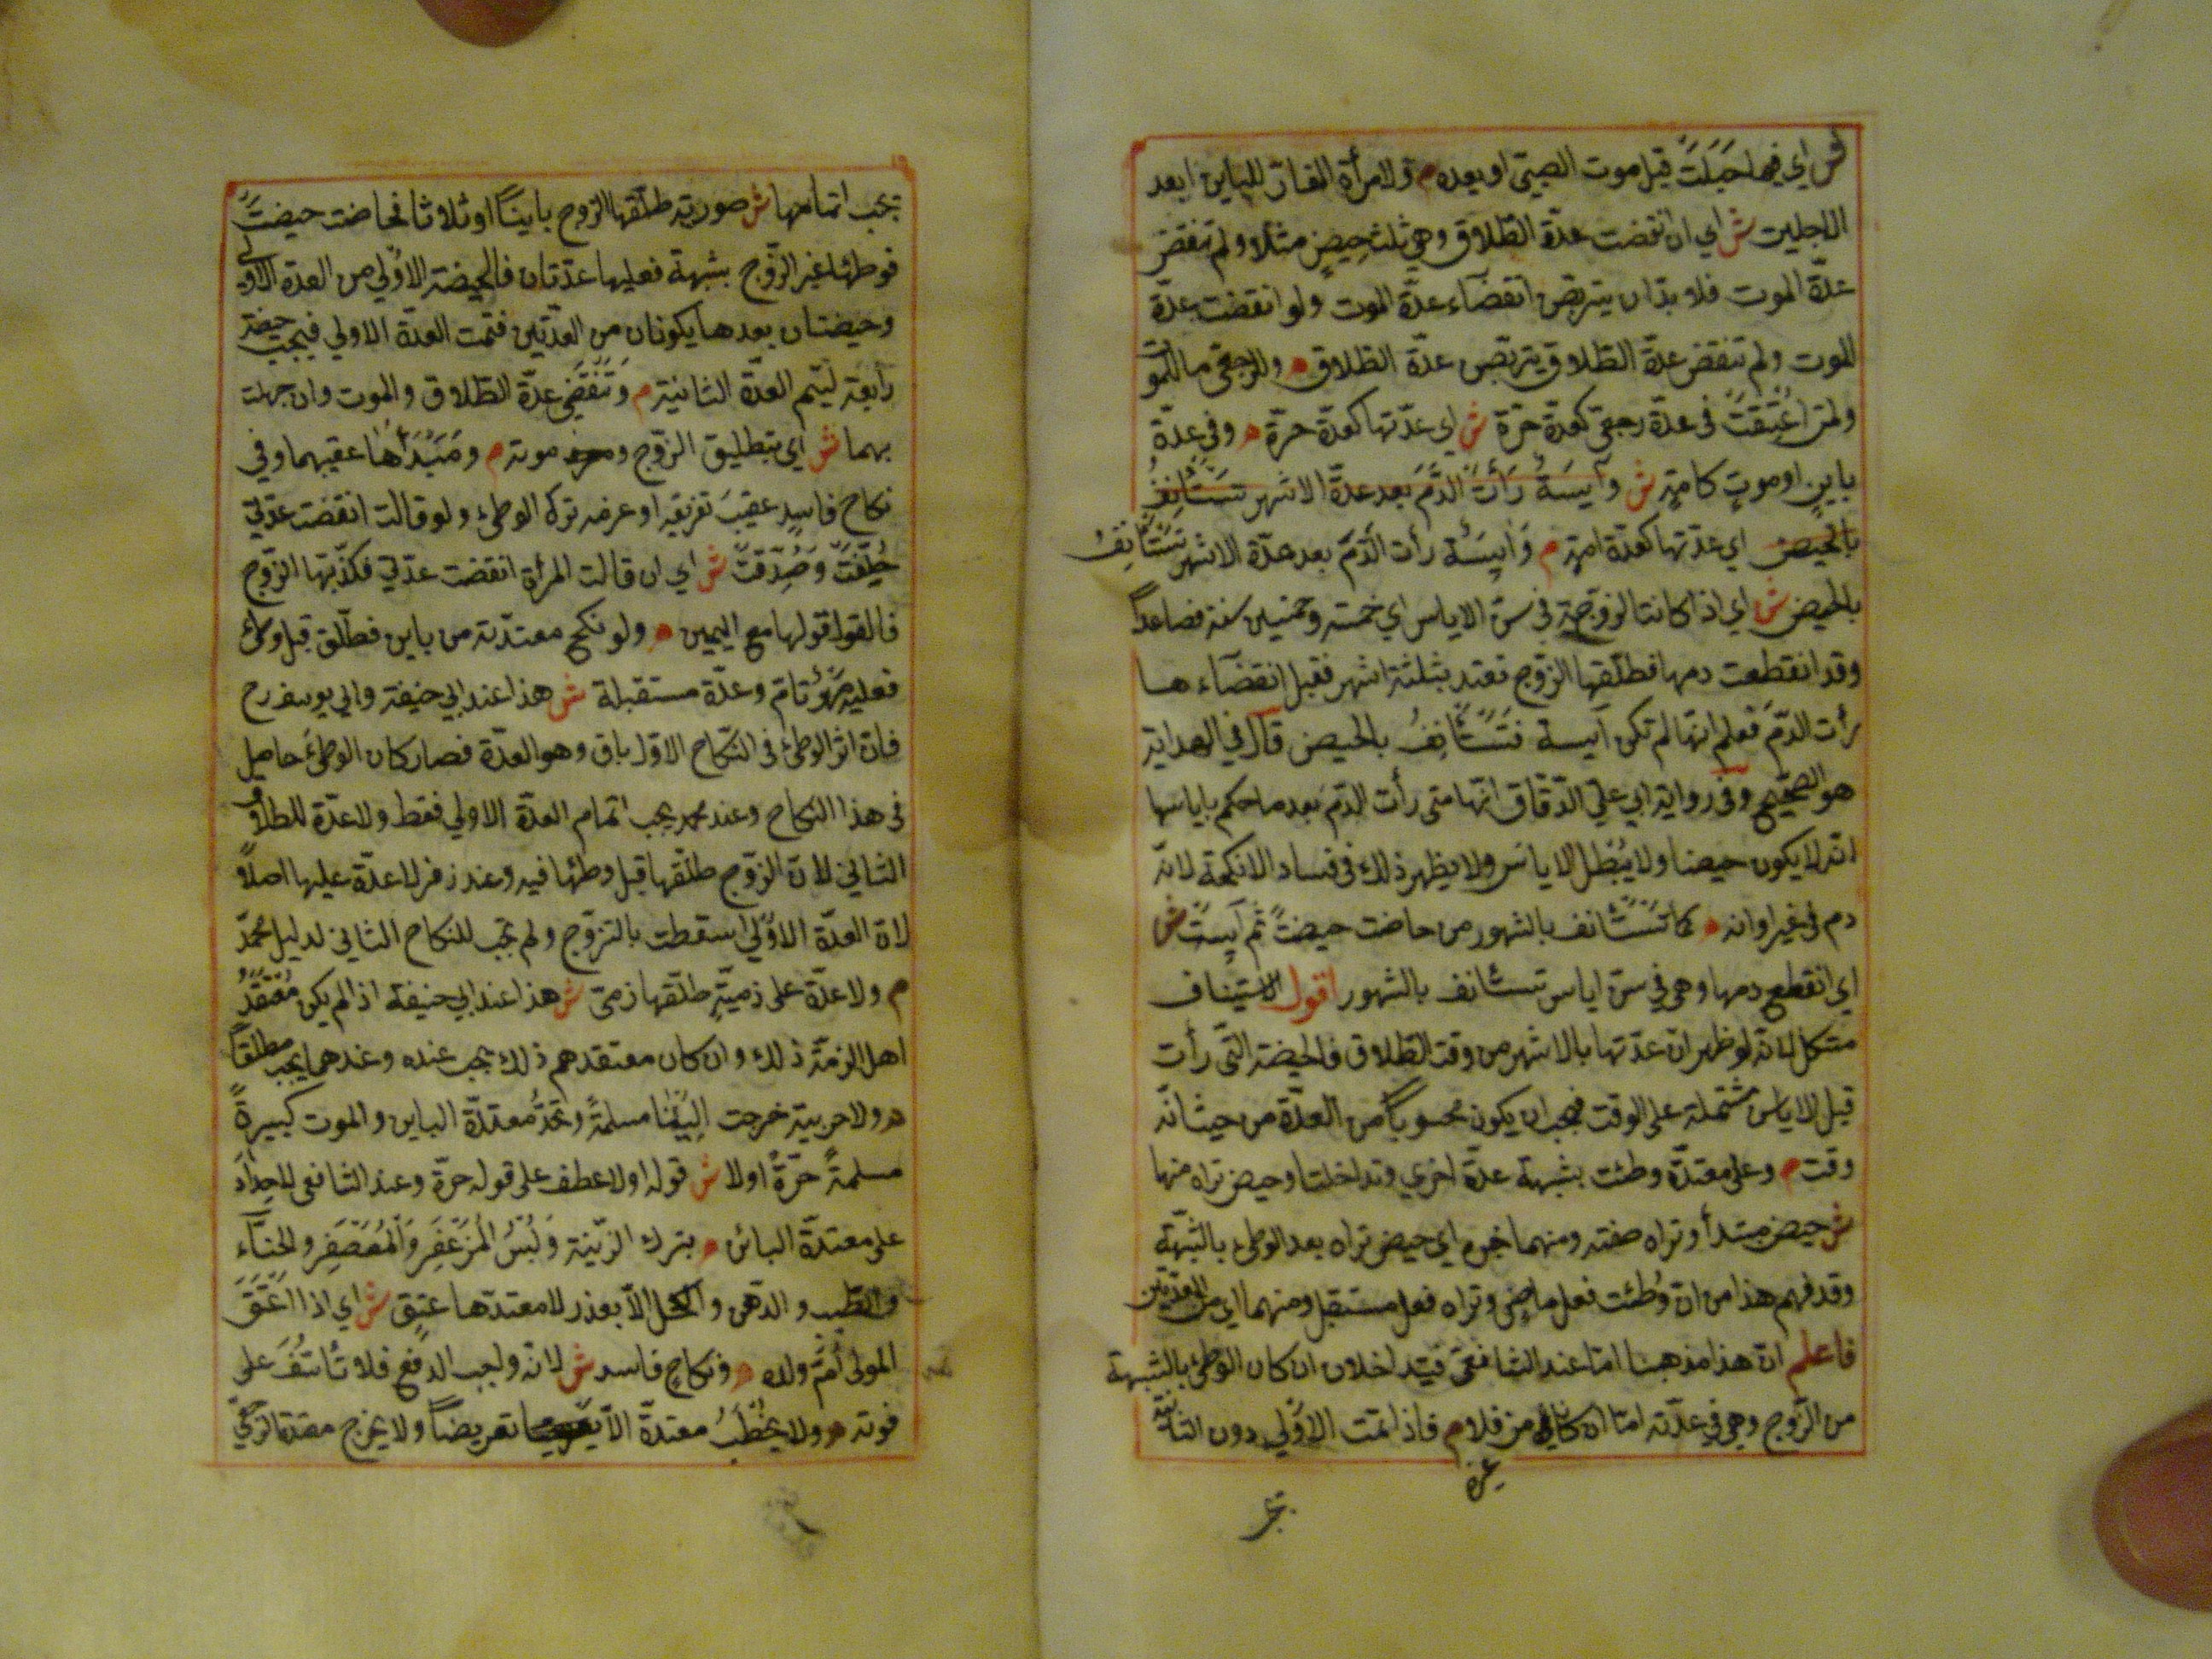 ش اي فيما حَبَلَتْ قبل موت الصبيّ او بعده م ولامرأة الفارّ للباين ابعد
الاجلين ش اي ان انقضت عدّة الطّلاق وهي ثلث حِيَضٍ مثلا ولم تنقض
عدّة الموت فلا بدّ ان يتربّص انقضاء عدّة الموت ولو انقضت عدّة
الموت ولم تنقض عدّة الطّلاق يتربّص عدّة الطّلاق م وللرجعيّ ما للموت
ولمن اُعْتِقَتْ فى عدّة رجعيّ كعدّة حرّة ش اى عدّتها كعدّة حرّة م وفى عدّة
باين او موتٍ كامةٍ ش وآيسَةٌ رَأَتْ الدَّمَ بعد عدّة الاشهر تستَأنِفُ
بالحيض اي عدّتها كعدّة امةٍ م وَآيِسَةٌ رأت الدّمّ بعد عدّة الاشهر تَسْتَأنِفُ
بالحيض ش اي اذا كانت الزوجة في سنّ الاياس اي خمسة وخمسين سنة فصاعداً
وقد انقطعت دمها فطلّقها الزّوج تعتد بثلثة اشهر فقبل انقضاءها
رأت الدّمّ فعلم انّها لم تكن آيسة فتَسْتَأنِفُ بالحيض قال في الهداية
هو الصّحيح وفى رواية ابي عليّ الدّقّاق انّها متى رأت الدّمّ بعد ما حكم باياسها
انّه لا يكون حيضا ولا يُبْطِل الاياسَ ولا يظهر ذلك فى فساد الانكحة لانّه
دم فى غير اوانه م كما تَسْتَأنف بالشهور من حاضت حيضةً ثم آيِسَتْ ش
اى انقطع دمها وهي في سنّ اياس تستأنف بالشهور اقول الاستيناف
مشكل لانّه لو ظهر انّ عدّتها بالاشهر من وقت الطّلاق فالحيضة التّى رأت
قبل الاياس مشتملة على الوقت فيجب ان يكون محسوباً من العدّة من حيث انّه
وقت م وعلى معتدّة وطئت بشبهة عدّة اخري وتداخلتا وحيض تراه منها
ش حيض مبتدأ وتراه صفته ومنهما خبره اي حيض تراه بعد الوطئ بالشّبهة
وقد فهم هذا من انّ وُطئت فعل ماضٍ وتراه فعل مستقبل ومنهما اي من العدّتين
فاعلم انّ هذا مذهبنا امّا عند الشافعيّ فيتداخلان ان كان الوطئ بالشبهة
من الزّوج وهي في عدّته امّا ان كان من غيره فلا م فاذا تمّت الاوّلي دون الثانية
تجب
تجب اتمامها ش صورته طلّقها الزوج بايناً او ثلاثا فحاضت حيضةً
فوطئها غير الزّوج بشبهة فعليها عدّتان فالحيضة الاوّلي من العدّة الاولى
وحيضتان بعدها يكونان من العدّتين فتمّت العدّة الاولي فيجب حيضة
رابعة ليتم العدّة الثانية م وَتَنْقَضِي عدّة الطّلاق والموت وان جهلت
بهما ش اي بتطليق الزّوج وموته م ومَبْدَأهَا عقيبهما وفي
نكاح فاسدٍ عقيبَ تفريقه او عزمه تركَ الوطئِ ولو قالت انقضت عدّتي
حُلِّفَتْ وَصُدِّقَتْ ش اي ان قالت المرأة انقضت عدّتي فكذّبتها الزّوج
فالقول قولها مع اليمين م ولو نكح معتدّته من باين فطلّق قبل وطئ
فعليه مَهْرٌ تامّ وعدّة مستقبلة ش هذا عند ابي حنيفة وابي يوسف رح
فانّ اثر الوطئ فى النّكاح الاوّل باق وهو العدّة فصار كان الوطئ حاصل
فى هذا النكاح وعند محمد يجب اتمام العدّة الاولي فقط ولا عدّة للطلاق
الثاني لانّ الزّوج طلّقها قبل وطئها فيه وعند زفر لا عدّة عليها اصلاً
لانّ العدّة الاوّلي اسقطت بالتزوّج ولم تجب للنكاح الثاني لدليل محمّد
م ولا عدّة على ذميّةٍ طلّقها ذمىّ ش هذا عند ابي حنيفة اذا لم يكن مُعْتَقَدُ
اهل الذمّة ذلك وان كان معتقدهم ذلك يجب عنده وعندهما يجب مطلقاً
م ولا حربية خرجت اِلَيْنا مسلمةً وتَحُدُّ معتدّة الباين والموت كبيرةً
مسلمةً حرّةً اولا ش قوله اولا عطف على قوله حرّة وعند الشافعى لا حِدادَ
على معتدّة البائن م بترك الزّينة وَلُبْسُ المُزَعْفَر وَالْمُعَصْفَرِ والحنّاء
والطّيب والدّهن والكحل الاّ بعذر لا معتدّها عتق ش اي اذا اَعْتَقَ
المولى اُمَّ ولده م ونكاحٍ فاسد ش لانّه واجب الدفع فلا تأسّفُ على
فوته م ولا يُخْطَبُ معتدّة الاّ تعريضاً ولا يخرج معتدّة الرّجعيّ